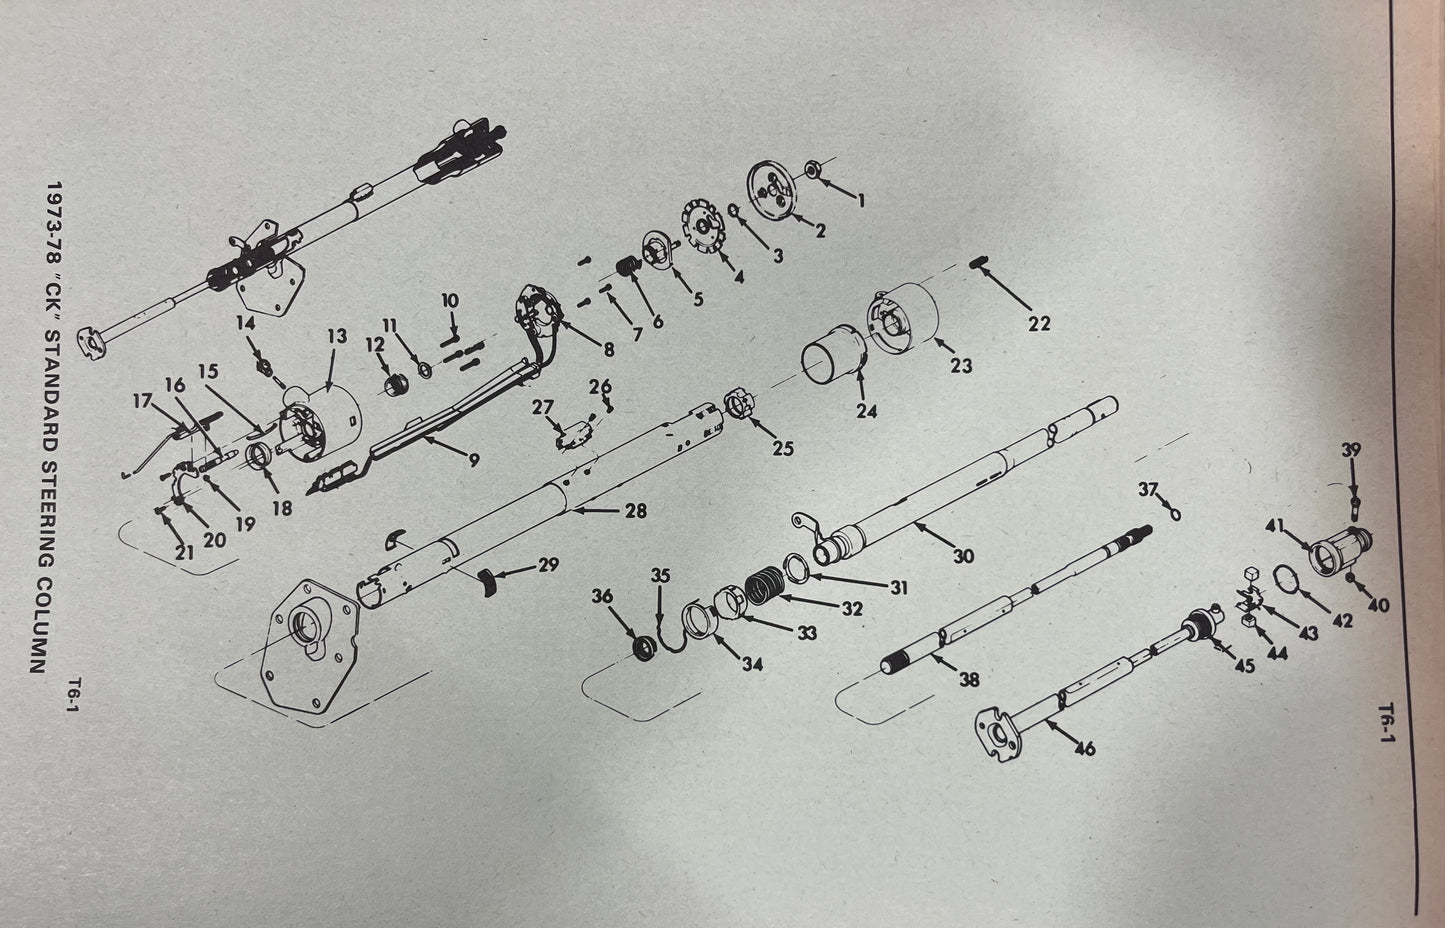 1973-78 "CK" STANDARD STEERING COLUMN
T6-1
T6-1
1
2
3
4
5
6
7
8
9
10
11
12
13
14
15
16
17
18
19
20
21
22
23
24
25
26
27
28
29
30
31
32
33
34
35
36
37
38
39
40
41
42
43
44
45
46